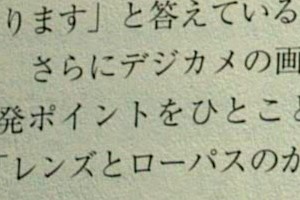 ります」と答えている
さらにデジカメの画
発ポイントをひとこと
「レンズとローパスのか